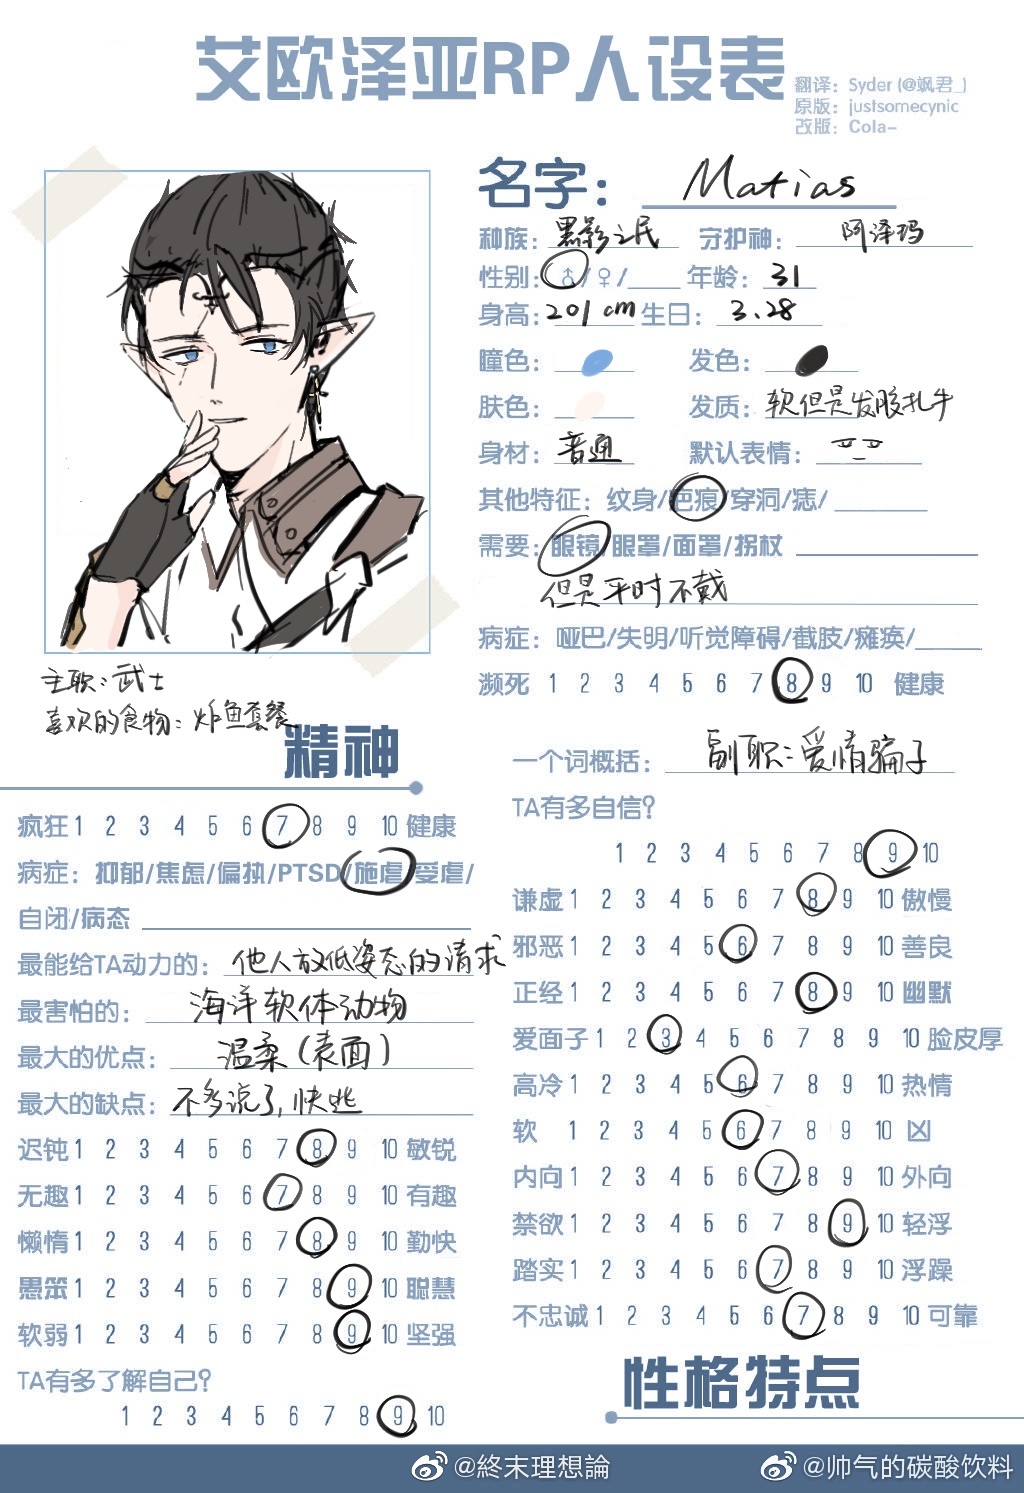 艾欧泽亚RP人设表
翻译：Syder (@飒君_)
原版：justsomecynic
改版：Cola-
名字： Matias
种族：黑影之民 守护神：阿泽玛
性别：♂/♀/ 年龄：31
身高：201cm 生日：3.28
瞳色： 发色：
肤色： 发质：软但是发胶扎牛
身材：普通 默认表情：
其他特征：纹身/疤痕/穿洞/痣/
需要：眼镜/眼罩/面罩/拐杖
但是平时不戴
病症：哑巴/失明/听觉障碍/截肢/瘫痪/
濒死 1 2 3 4 5 6 7 8 9 10 健康
主职：武士
喜欢的食物：炸鱼套餐
精神
疯狂 1 2 3 4 5 6 7 8 9 10 健康
病症：抑郁/焦虑/偏执/PTSD/施虐/受虐/
自闭/病态
最能给TA动力的：他人放低姿态的请求
最害怕的：海洋软体动物
最大的优点：温柔(表面)
最大的缺点：不多说了,快逃
迟钝 1 2 3 4 5 6 7 8 9 10 敏锐
无趣 1 2 3 4 5 6 7 8 9 10 有趣
懒惰 1 2 3 4 5 6 7 8 9 10 勤快
愚笨 1 2 3 4 5 6 7 8 9 10 聪慧
软弱 1 2 3 4 5 6 7 8 9 10 坚强
TA有多了解自己？
1 2 3 4 5 6 7 8 9 10
一个词概括：副职：爱情骗子
TA有多自信？
1 2 3 4 5 6 7 8 9 10
谦虚 1 2 3 4 5 6 7 8 9 10 傲慢
邪恶 1 2 3 4 5 6 7 8 9 10 善良
正经 1 2 3 4 5 6 7 8 9 10 幽默
爱面子 1 2 3 4 5 6 7 8 9 10 脸皮厚
高冷 1 2 3 4 5 6 7 8 9 10 热情
软 1 2 3 4 5 6 7 8 9 10 凶
内向 1 2 3 4 5 6 7 8 9 10 外向
禁欲 1 2 3 4 5 6 7 8 9 10 轻浮
踏实 1 2 3 4 5 6 7 8 9 10 浮躁
不忠诚 1 2 3 4 5 6 7 8 9 10 可靠
性格特点
@終末理想論
@帅气的碳酸饮料